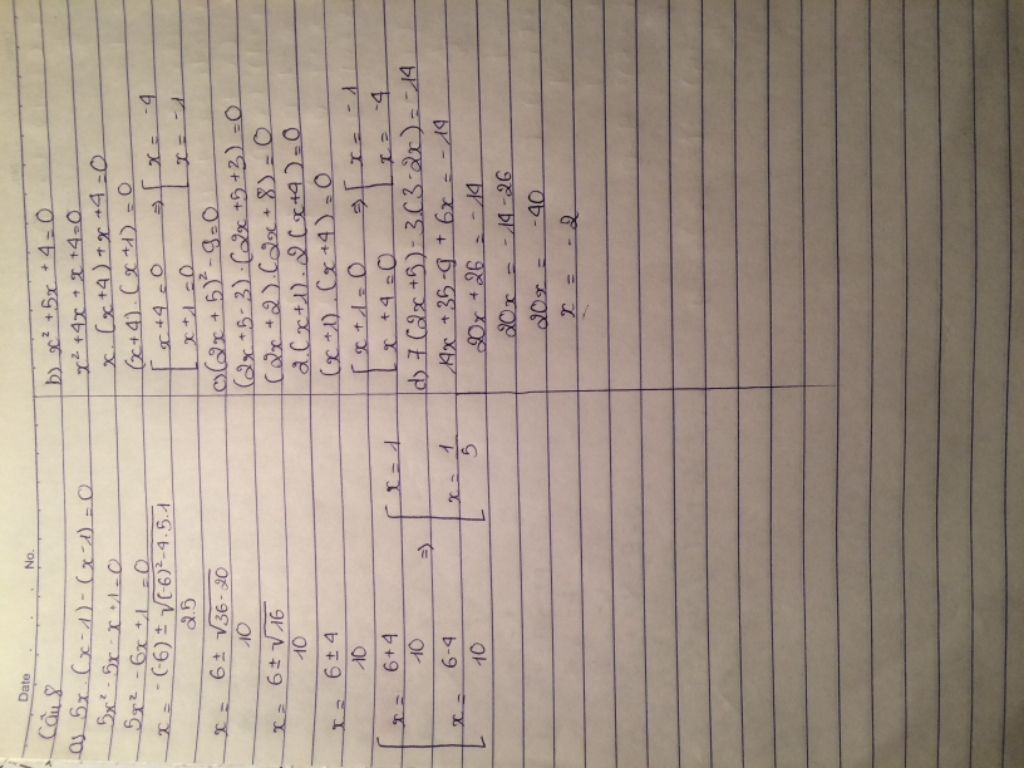 Date No.
Câu 8
a) 5x.(x-1)-(x-1)=0
5x²-5x-x+1=0
5x²-6x+1=0
x = -(-6)±√(-6)²-4.5.1
2.5
x = 6±√36-20
10
x = 6±√16
10
x = 6±4
10
[ x = 6+4
10
=> [ x = 1
x = 6-4
10
x = 1
5
b) x²+5x+4=0
x²+4x+x+4=0
x(x+4)+x+4=0
(x+4).(x+1)=0
[ x+4=0 => [ x = -4
x+1=0 x = -1
c) (2x+5)²-9=0
(2x+5-3).(2x+5+3)=0
(2x+2).(2x+8)=0
2(x+1).2(x+4)=0
(x+1).(x+4)=0
[ x+1=0 => [ x = -1
x+4=0 x = -4
d) 7(2x+5)-3(3-2x)=-14
14x+35-9+6x=-14
20x+26=-14
20x=-14-26
20x=-40
x=-2